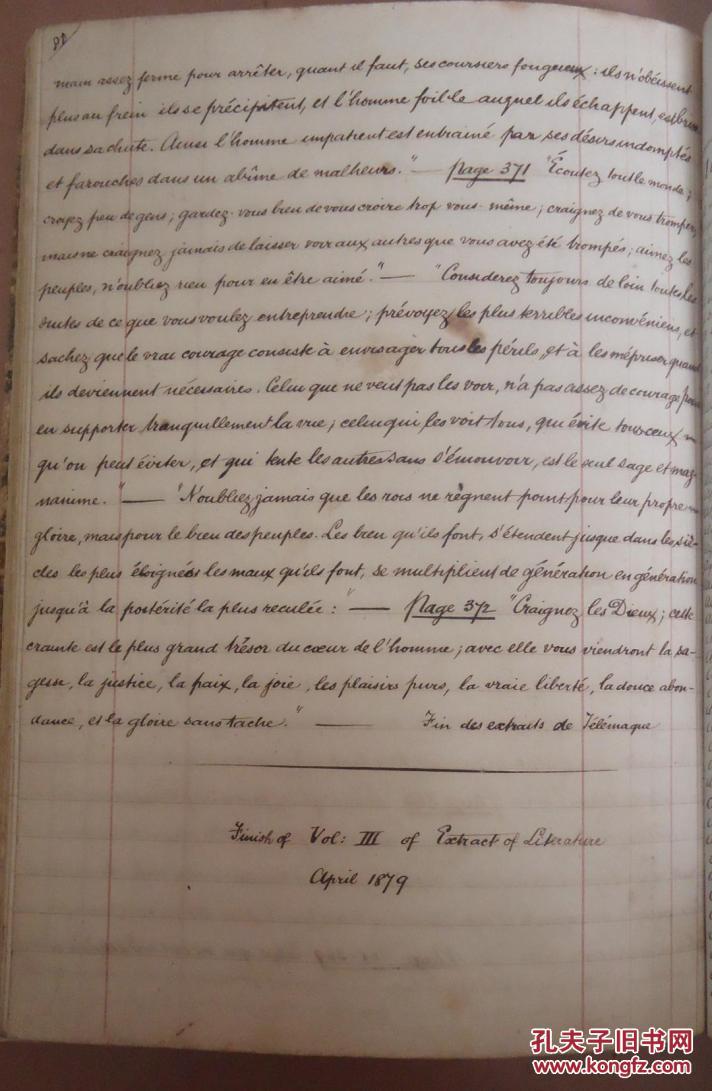 main assez ferme pour arrêter, quant il faut, ses coursiers fougueux : ils n'obéissent
plus au frein ils se précipitent, et l'homme foible auquel ils échappent, est brisé
dans sa chute. Ainsi l'homme impatient est entrainé par ses désirs indomptés
et farouches dans un abîme de malheurs." — Page 371 "Écoutez tout le monde ;
croyez peu de gens ; gardez-vous bien de vous croire trop vous-même ; craignez de vous tromper,
mais ne craignez jamais de laisser voir aux autres que vous avez été trompés ; aimez les
peuples, n'oubliez rien pour en être aimé." — "Considerez toujours de loin toutes les
suites de ce que vous voulez entreprendre ; prévoyez les plus terribles inconvéniens, et
sachez que le vrai courage consiste à envisager tous les périls, et à les mépriser quand
ils deviennent nécessaires. Celui que ne veut pas les voir, n'a pas assez de courage pour
en supporter tranquillement la vue ; celui qui les voit tous, qui évite tous ceux
qu'on peut éviter, et qui tente les autres sans s'émouvoir, est le seul sage et mag-
nanime." — "N'oubliez jamais que les rois ne règnent point pour leur propre
gloire, mais pour le bien des peuples. Les bien qu'ils font, s'étendent jusque dans les siè-
cles les plus éloignés les maux qu'ils font, se multiplient de génération en génération
jusqu'à la postérité la plus reculée :" — Page 372 "Craignez les Dieux ; cette
crainte est le plus grand trésor du cœur de l'homme ; avec elle vous viendront la sa-
gesse, la justice, la paix, la joie, les plaisirs purs, la vraie liberté, la douce abon-
dance, et la gloire sans tache." — Fin des extraits de Télémaque
Finish of Vol: III of Extract of Literature
April 1879
孔夫子旧书网
www.kongfz.com